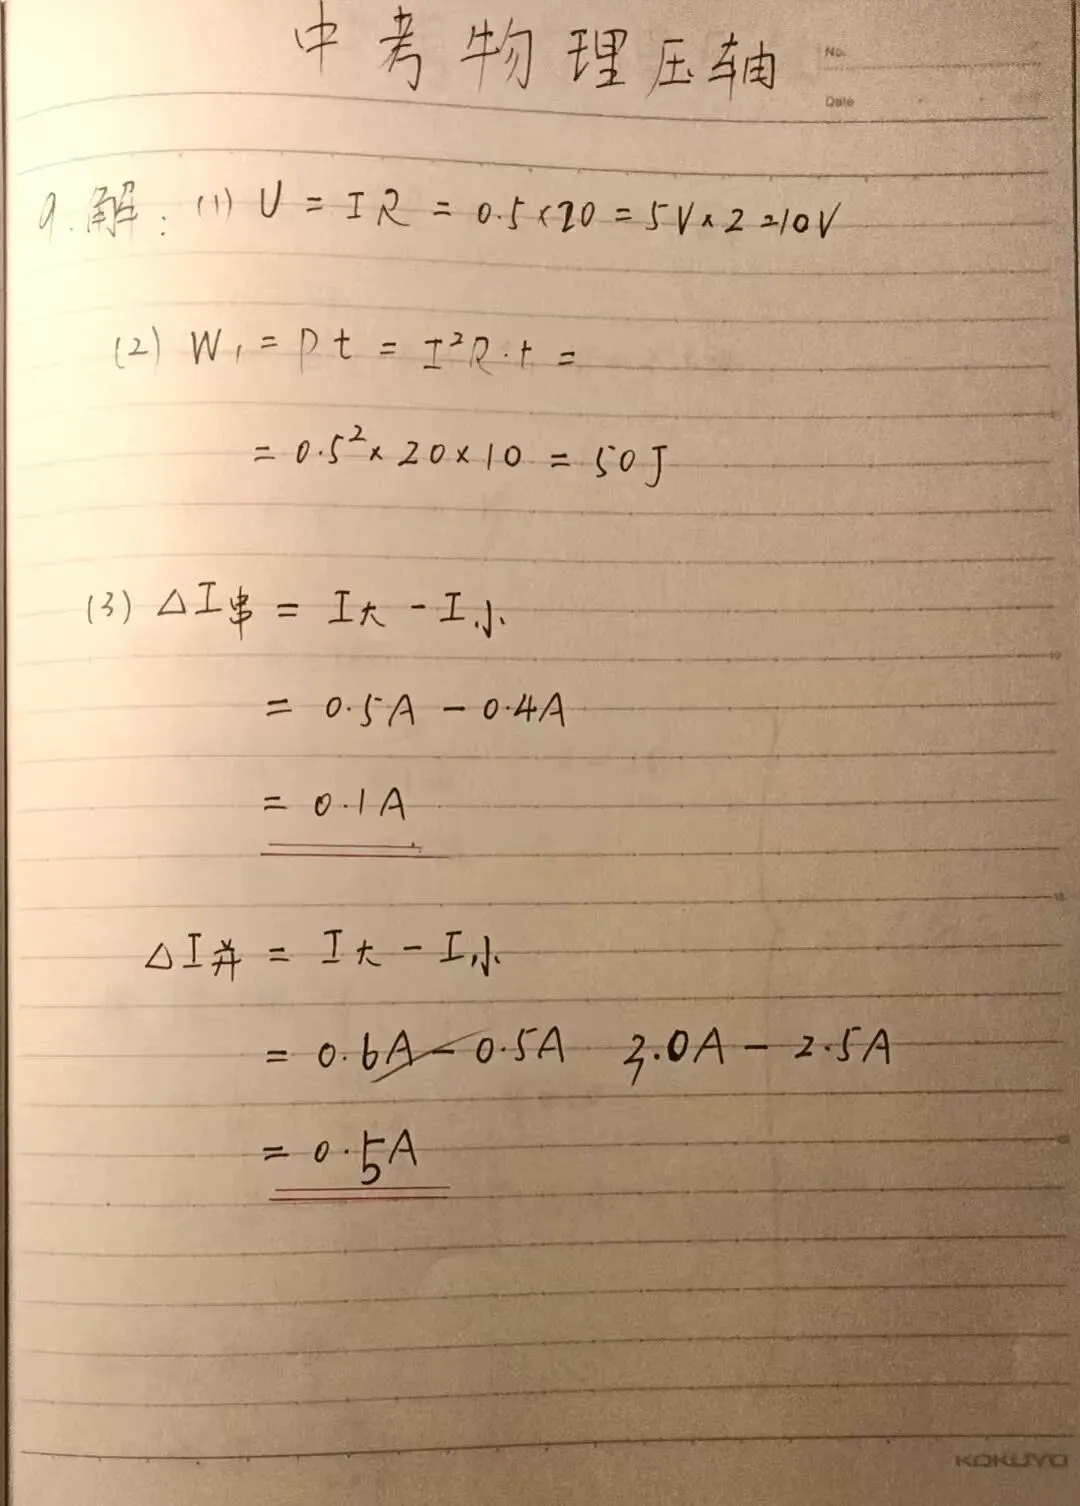 中考物理压轴
No.
Date
9.解：(1) U = IR = 0.5×20 = 5V×2=10V
(2) W₁ = Pt = I²R·t =
= 0.5²×20×10 = 50J
(3) △I串 = I大 - I小
= 0.5A - 0.4A
= 0.1A
△I并 = I大 - I小
= 0.6A - 0.5A 3.0A - 2.5A
= 0.5A
KOKUYO